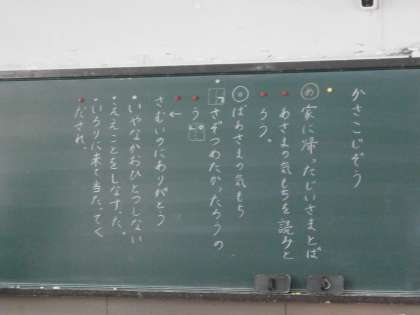 かさこじぞう
め 家に帰ったじいさまとば
あさまの気もちを読みと
ろう。
ばあさまの気もち
さぞつめたかったろうの
う
さむいのにありがとう
・いやなかおひとつしない
・ええことをしなすった。
・いろりに来て当たってく
ださい。